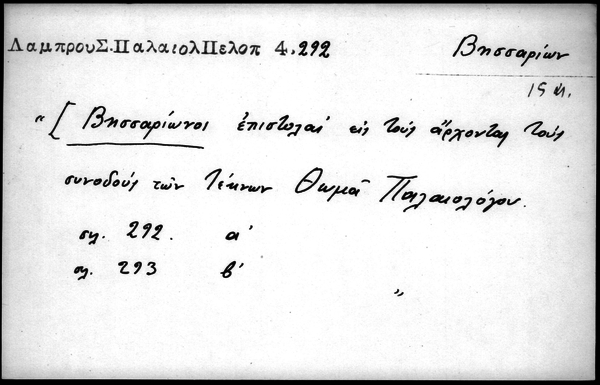 ΛαμπρουΣ.ΠαλαιολΠελοπ 4.292
Βησσαρίων
15 αι.
"[ Βησσαρίωνος ἐπιστολαί εἰς τούς ἄρχοντας τούς
συνοδούς τῶν τέκνων Θωμᾶ Παλαιολόγου.
σλ. 292. α'
σλ. 293 β'
"